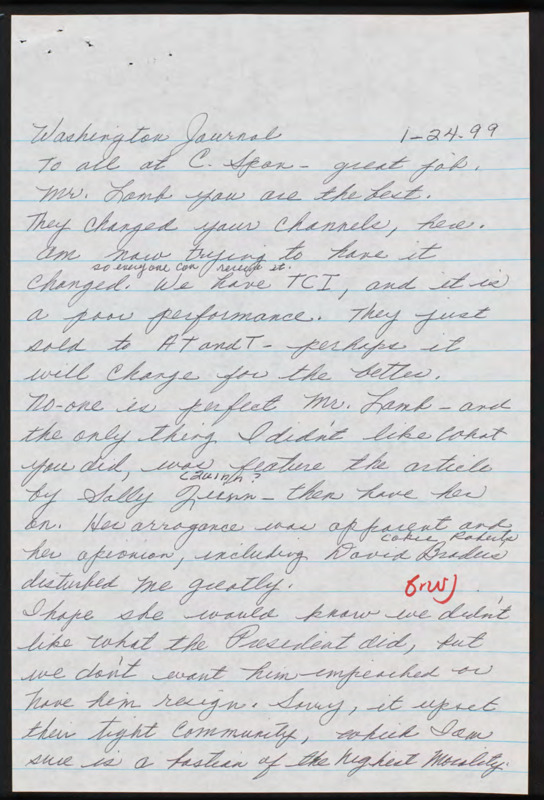 Washington Journal 1-24-99
To all at C. Span - great job.
Mr. Lamb you are the best.
They changed your channels, here.
am now trying to have it
so everyone can receive it.
changed. We have TCI, and it is
a poor performance. They just
sold to AT and T - perhaps it
will change for the better.
No-one is perfect Mr. Lamb - and
the only thing I didn't like what
you did, was feature the article
(Quinn?
by Sally - then have her
on. Her arrogance was apparent and
Cokie Roberts
her opionion, including David Broders
disturbed me greatly.
I hope she would know we didn't
like what the President did, but
we don't want him impeached or
have him resign. Sorry, it upset
their tight community, which I am
sure is a bastian of the highest Morality.